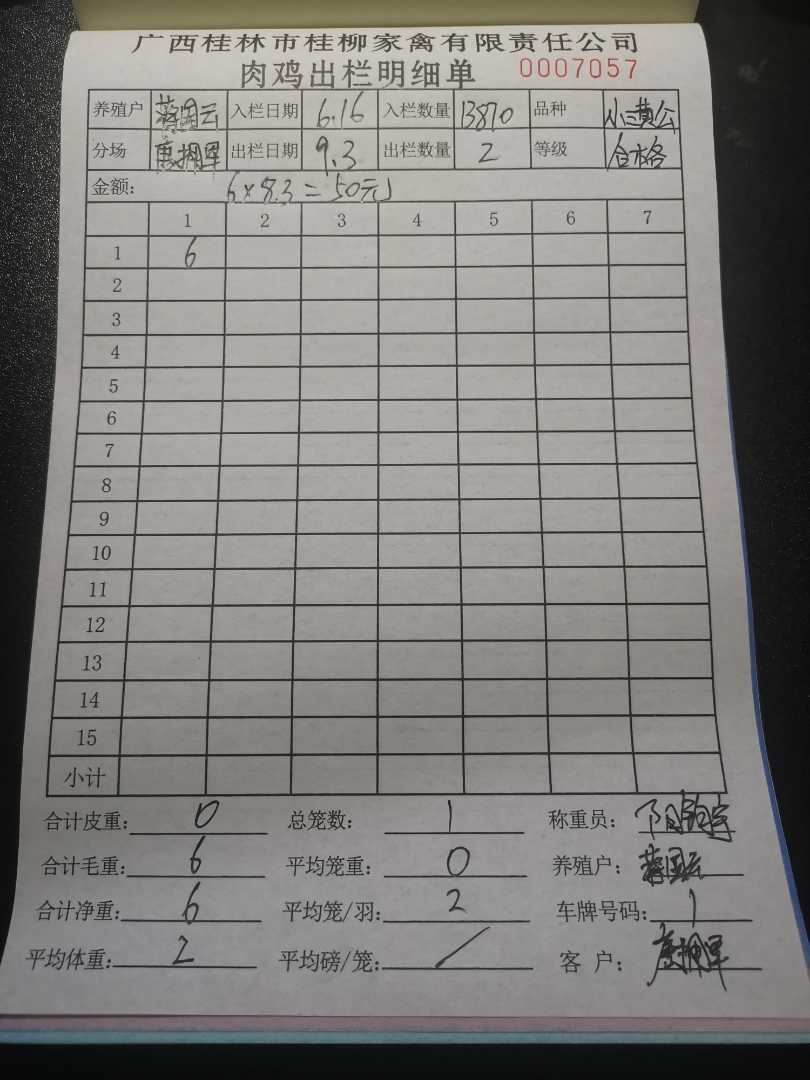 广西桂林市桂柳家禽有限责任公司
肉鸡出栏明细单 0007057
养殖户 蒋国云 入栏日期 6.16 入栏数量 13870 品种 小三黄公
分场 唐拥军 出栏日期 9.3 出栏数量 2 等级 合格
金额: 6×8.3=50元
1 2 3 4 5 6 7
1 6
2
3
4
5
6
7
8
9
10
11
12
13
14
15
小计
合计皮重: 0 总笼数: 1 称重员:
合计毛重: 6 平均笼重: 0 养殖户: 蒋国云
合计净重: 6 平均笼/羽: 2 车牌号码: 1
平均体重: 2 平均磅/笼: / 客 户: 唐拥军